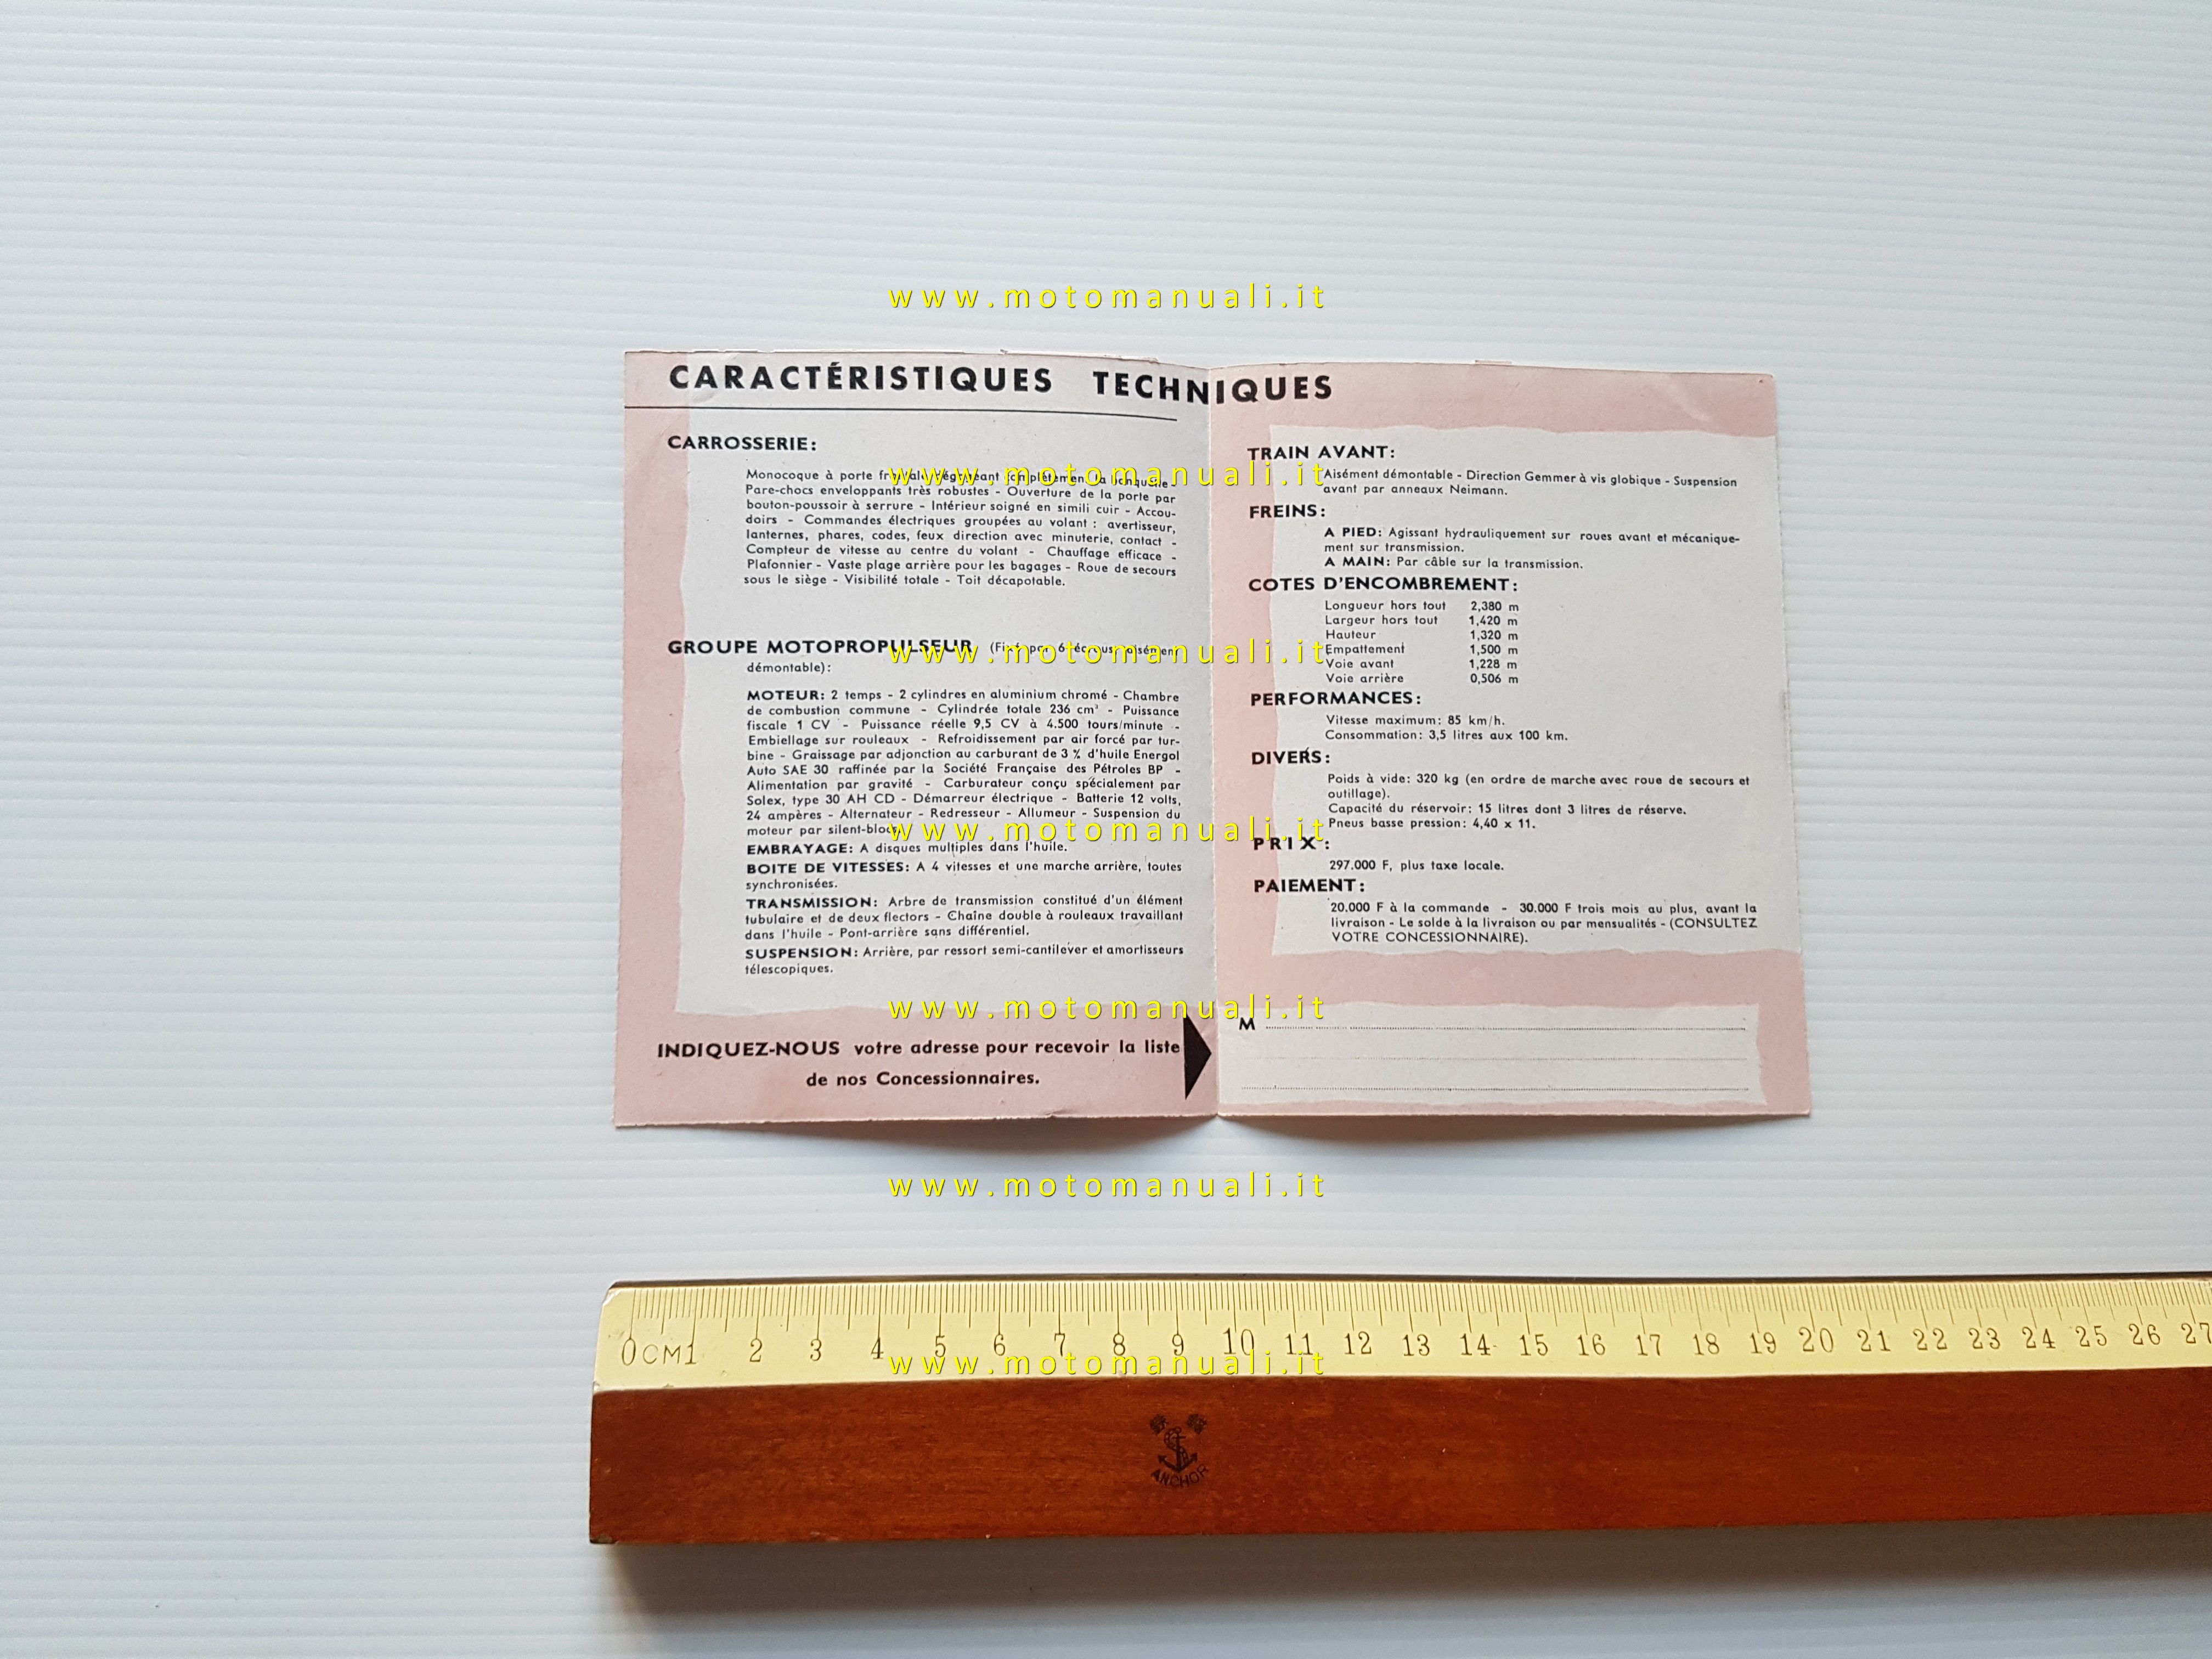 www.motomanuali.it
CARACTÉRISTIQUES TECHNIQUES
CARROSSERIE:
Monocoque à porte frontale dégageant complètement la banquette -
Pare-chocs enveloppants très robustes - Ouverture de la porte par
bouton-poussoir à serrure - Intérieur soigné en simili cuir - Accou-
doirs - Commandes électriques groupées au volant : avertisseur,
lanternes, phares, codes, feux direction avec minuterie, contact -
Compteur de vitesse au centre du volant - Chauffage efficace -
Plafonnier - Vaste plage arrière pour les bagages - Roue de secours
sous le siège - Visibilité totale - Toit décapotable.
www.motomanuali.it
GROUPE MOTOPROPULSEUR (Fixé par 6 écrous, aisément
démontable):
www.motomanuali.it
MOTEUR: 2 temps - 2 cylindres en aluminium chromé - Chambre
de combustion commune - Cylindrée totale 236 cm³ - Puissance
fiscale 1 CV - Puissance réelle 9,5 CV à 4.500 tours/minute -
Embiellage sur rouleaux - Refroidissement par air forcé par tur-
bine - Graissage par adjonction au carburant de 3 % d'huile Energol
Auto SAE 30 raffinée par la Société Française des Pétroles BP -
Alimentation par gravité - Carburateur conçu spécialement par
Solex, type 30 AH CD - Démarreur électrique - Batterie 12 volts,
24 ampères - Alternateur - Redresseur - Allumeur - Suspension du
moteur par silent-blocs.
www.motomanuali.it
EMBRAYAGE: A disques multiples dans l'huile.
BOITE DE VITESSES: A 4 vitesses et une marche arrière, toutes
synchronisées.
TRANSMISSION: Arbre de transmission constitué d'un élément
tubulaire et de deux flectors - Chaîne double à rouleaux travaillant
dans l'huile - Pont-arrière sans différentiel.
SUSPENSION: Arrière, par ressort semi-cantilever et amortisseurs
télescopiques.
INDIQUEZ-NOUS votre adresse pour recevoir la liste
de nos Concessionnaires.
TRAIN AVANT:
Aisément démontable - Direction Gemmer à vis globique - Suspension
avant par anneaux Neimann.
FREINS:
A PIED: Agissant hydrauliquement sur roues avant et mécanique-
ment sur transmission.
A MAIN: Par câble sur la transmission.
COTES D'ENCOMBREMENT:
Longueur hors tout 2,380 m
Largeur hors tout 1,420 m
Hauteur 1,320 m
Empattement 1,500 m
Voie avant 1,228 m
Voie arrière 0,506 m
PERFORMANCES:
Vitesse maximum: 85 km/h.
Consommation: 3,5 litres aux 100 km.
DIVERS:
Poids à vide: 320 kg (en ordre de marche avec roue de secours et
outillage).
Capacité du réservoir: 15 litres dont 3 litres de réserve.
Pneus basse pression: 4,40 x 11.
PRIX:
297.000 F, plus taxe locale.
PAIEMENT:
20.000 F à la commande - 30.000 F trois mois au plus, avant la
livraison - Le solde à la livraison ou par mensualités - (CONSULTEZ
VOTRE CONCESSIONNAIRE).
www.motomanuali.it
M
www.motomanuali.it
0CM1 2 3 4 5 6 7 8 9 10 11 12 13 14 15 16 17 18 19 20 21 22 23 24 25 26 27
www.motomanuali.it
ANCHOR